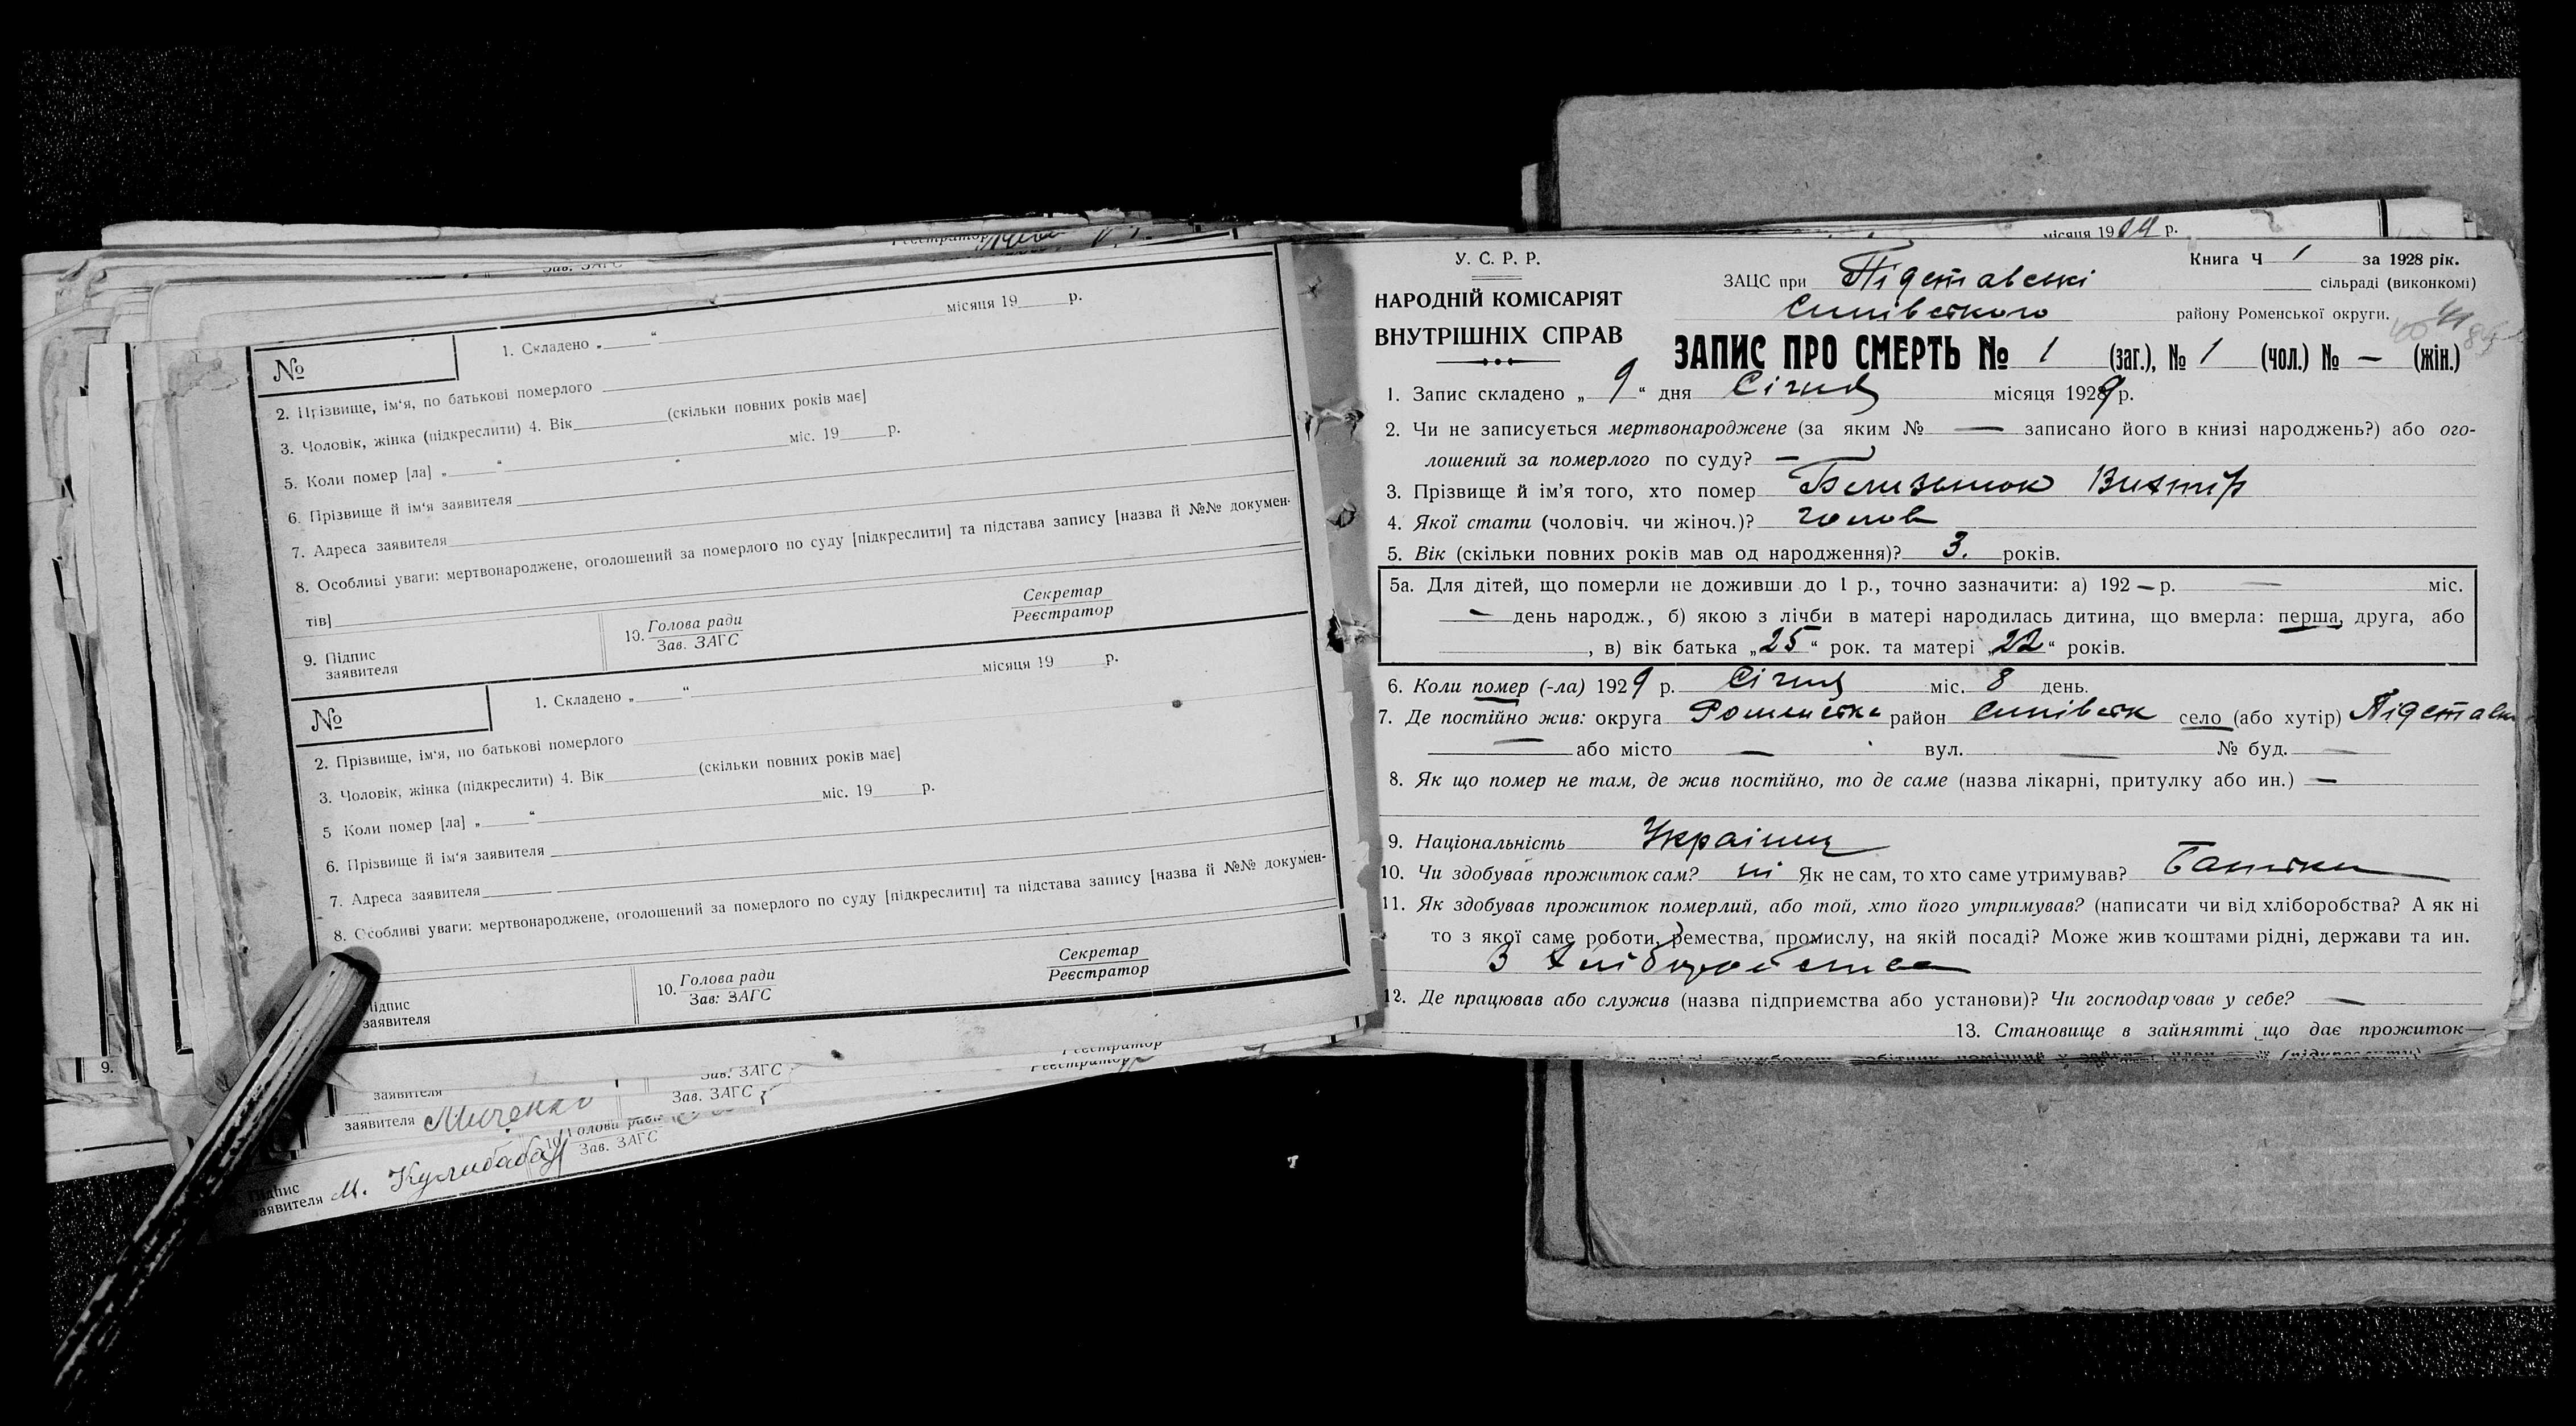 місяця 19 р.
№
1. Складено „ “
2. Прізвище, ім'я, по батькові померлого
3. Чоловік, жінка (підкреслити) 4. Вік (скільки повних років має]
5. Коли помер [ла] „ “ міс. 19 р.
6. Прізвище й ім'я заявителя
7. Адреса заявителя
8. Особливі уваги: мертвонароджене, оголошений за померлого по суду [підкреслити] та підстава запису [назва й №№ докумен-
тів]
9. Підпис
заявителя
10. Голова ради
Зав. ЗАГС
Секретар
Реєстратор
№
1. Складено „ “ місяця 19 р.
2. Прізвище, ім'я, по батькові померлого
3. Чоловік, жінка (підкреслити) 4. Вік (скільки повних років має]
5 Коли помер [ла] „ “ міс. 19 р.
6. Прізвище й ім'я заявителя
7. Адреса заявителя
8. Особливі уваги: мертвонароджене, оголошений за померлого по суду [підкреслити] та підстава запису [назва й №№ докумен-
Підпис
заявителя
10. Голова ради
Зав: ЗАГС
Секретар
Реєстратор
9.
заявителя
Зав. ЗАГС
Реєстратор
заявителя
Зав. ЗАГС
Реєстратор
Підпис
заявителя М. Кулибаба
10. Голова ради
Зав. ЗАГС
місяця 19 р.
У. С. Р. Р.
НАРОДНІЙ КОМІСАРІЯТ
ВНУТРІШНІХ СПРАВ
Книга Ч 1 за 1928 рік.
ЗАЦС при Підставські сільраді (виконкомі)
Синівського району Роменської округи.
ЗАПИС ПРО СМЕРТЬ № 1 (заг.), № 1 (чол.) № — (жін.)
1. Запис складено „ 9 “ дня Січня місяця 1929 р.
2. Чи не записується мертвонароджене (за яким № — записано його в книзі народжень?) або ого-
лошений за померлого по суду? —
3. Прізвище й ім'я того, хто помер Віктір
4. Якої стати (чоловіч. чи жіноч.)? чолов
5. Вік (скільки повних років мав од народження)? 3. років.
5а. Для дітей, що померли не доживши до 1 р., точно зазначити: а) 192 — р. — міс.
— день народж., б) якою з лічби в матері народилась дитина, що вмерла: перша, друга, або
, в) вік батька „25“ рок. та матері „22“ років.
6. Коли помер (-ла) 1929 р. Січня міс. 8 день.
7. Де постійно жив: округа Роменська район Синівськ село (або хутір) Підставк
— або місто — вул. — № буд. —
8. Як що помер не там, де жив постійно, то де саме (назва лікарні, притулку або ин.) —
9. Національність Українец
10. Чи здобував прожиток сам? ні Як не сам, то хто саме утримував? Батьки
11. Як здобував прожиток померлий, або той, хто його утримував? (написати чи від хліборобства? А як ні
то з якої саме роботи, ремества, промислу, на якій посаді? Може жив коштами рідні, держави та ин.
З хліборобства
12. Де працював або служив (назва підприємства або установи)? Чи господарював у себе? —
13. Становище в зайнятті що дає прожиток—